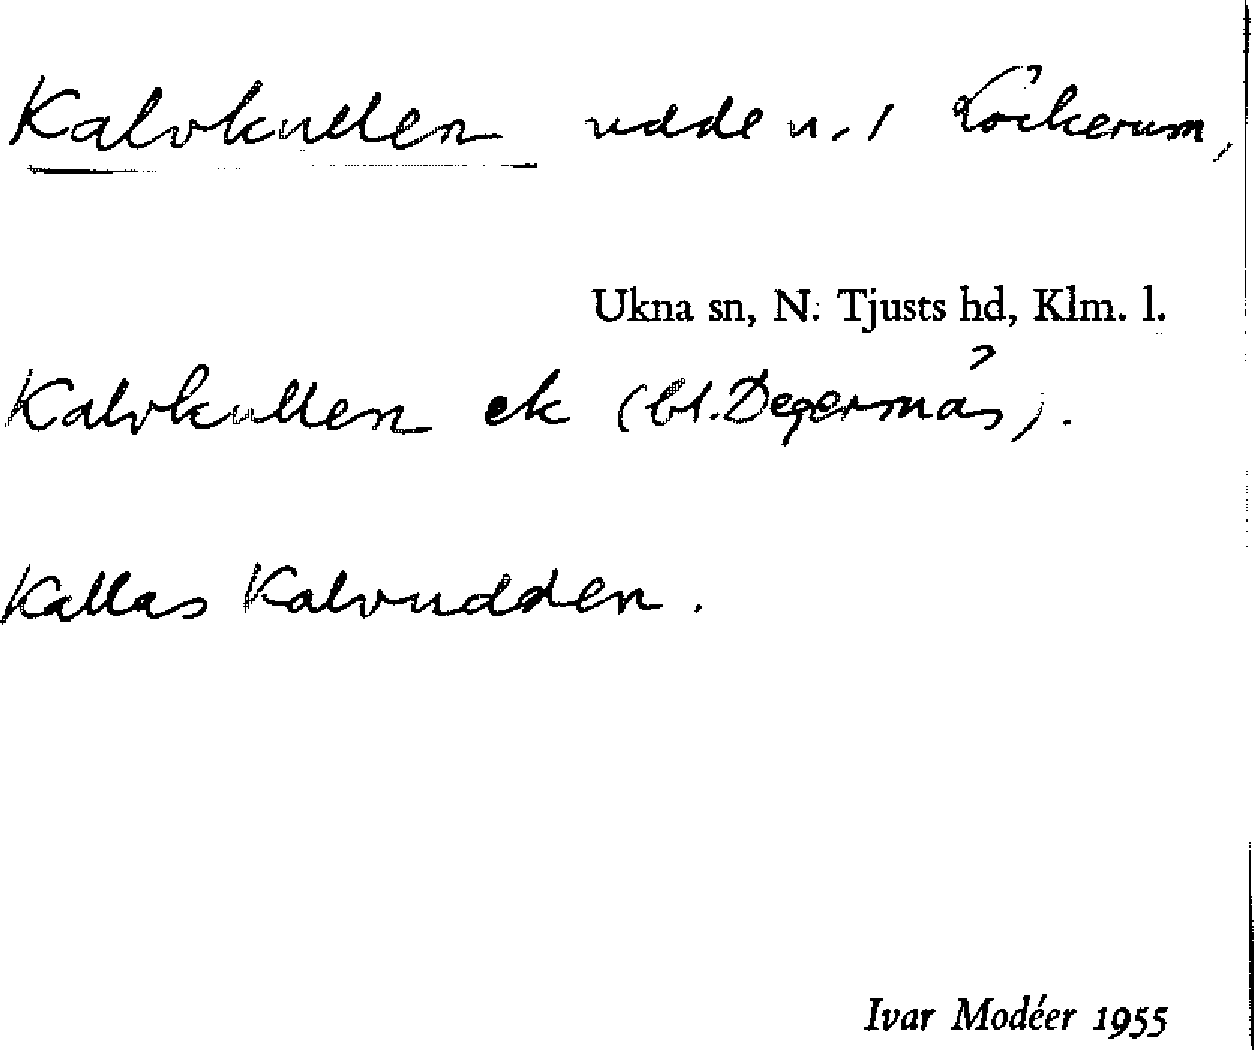 Kalvkullen udde n. i Löckerum,
Ukna sn, N. Tjusts hd, Klm. l.
Kalvkullen ek (bl. Degermås).
Kallas Kalvudden.
Ivar Modéer 1955